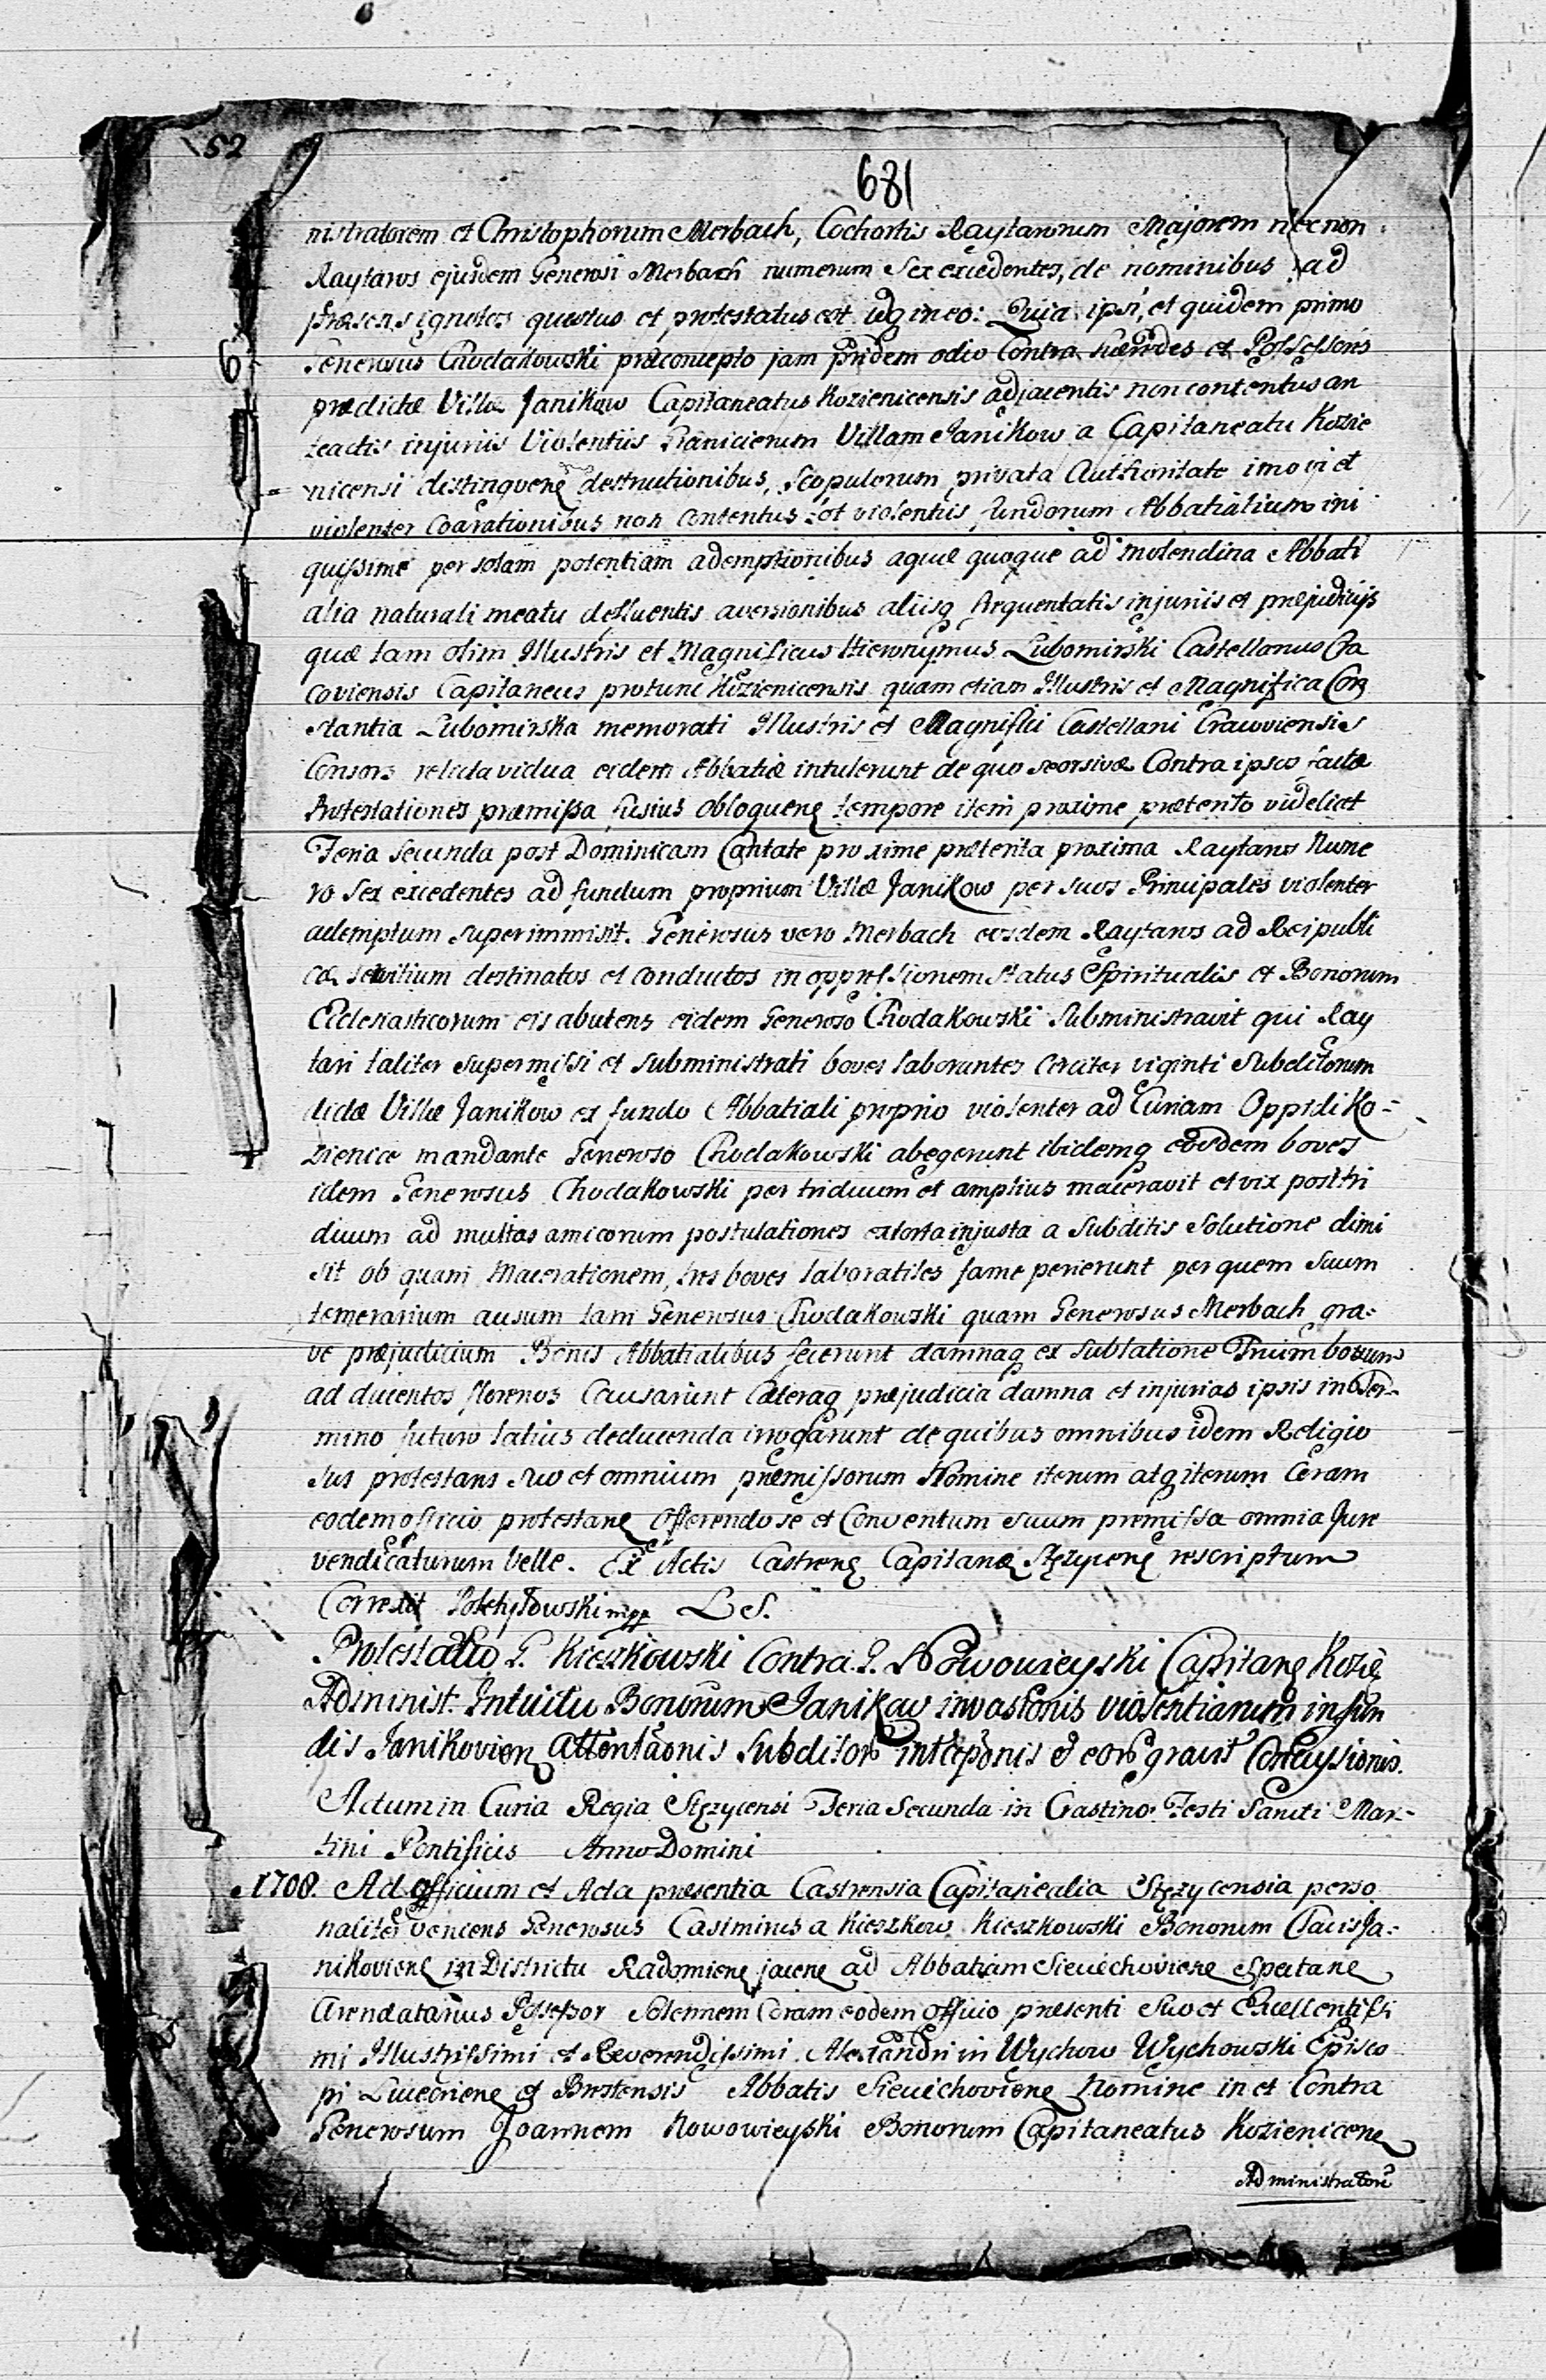 52
681
nistratorem et Christophorum Merbach, Cochortis Raytarorum Majorem nec non
Raytaros ejusdem Generosi Merbach numerum Sex excedentes, de nominibus ad
præsens ignotos questus et protestatus est idq in eo: Quia ipsi, et quidem primo
6
Generosus Chodakowski præconcepto jam pridem odio Contra hæredes et Possessores
prædictæ Villæ Janikow Capitaneatus Kozienicensis adjacentis non contentus an
teactis injuriis Violentiis Granicierum Villam Janikow a Capitaneatu Kozie
nicensi distinguene destructionibus, Scopulorum privata Authoritate imo vi et
violenter Coarationibus non Contentus tot violentiis fundorum Abbatialium ini
quissime per solam potentiam ademptionibus aquæ quoque ad molendina Abbati
alia naturali meatu defluentis aversionibus aliisq frequentatis injuriis et præjudicijs
quæ tam olim Illustris et Magnificus Hieronymus Lubomirski Castellanus Cra
coviensis Capitaneus protunc Kozienicensis quam etiam Illustris et Magnifica Con
stantia Lubomirska memorati Illustris et Magnifici Castellani Cracoviensis
Consors relicta vidua eidem Abbatiæ intulerunt de quo seorsivæ Contra ipsos factæ
Protestationes præmissa fusius obloquene tempore item proxime præterito videlicet
Feria secunda post Dominicam Cantate proxime præterita proxima Raytaros Nume
ro Sex excedentes ad fundum proprium Villæ Janikow per suos Principales violenter
ademptum superimmisit. Generosus vero Merbach eosdem Raytaros ad Reipubli
cæ servitium destinatos et conductos in oppressionem Status Spiritualis et Bonorum
Ecclesiasticorum eis abutens eidem Generoso Chodakowski Subministravit qui Ray
tari taliter supermissi et subministrati boves laborantes Circiter viginti Subditorum
dictæ Villæ Janikow ex fundo Abbatiali proprio violenter ad Curiam Oppidi Ko-
zienice mandante Generoso Chodakowski abegerunt ibidemq eosdem boves
idem Generosus Chodakowski per triduum et amplius maceravit et vix post tri
duum ad multas amicorum postulationes extorta injusta a Subditis Solutione dimi
sit ob quam Macerationem, tres boves laboratiles fame perierunt per quem suum
temerarium ausum tam Generosus Chodakowski quam Generosus Merbach gra-
ve præjudicium Bonis Abbatialibus fecerunt damnaq ex sublatione Trium boum
ad ducentos florenos Causarunt Cæteraq præjudicia damna et injurias ipsis in ter-
mino futuro latius deducenda irrogarunt de quibus omnibus idem Religio
sus protestans suo et omnium præmissorum Nomine iterum atq iterum Coram
eodem officio protestane offerendo se et Conventum suum præmissa omnia Jure
vendicaturum velle. Ex Actis Castrene Capitane Stezycene rescriptum
Correxit mpp L. S.
Protestatio G. Kieszkowski Contra G. Nowowieyski Capitane Kozie
Administ: Intuitu Bonorum Janikow invasionis violentiarum in fun
dis Janikovien attentaonis Subditor intceponis & eor gravis Concussionis.
Actum in Curia Regia Stezycensi Feria Secunda in Crastino Festi Sancti Mar-
tini Pontificis Anno Domini
1708. Ad officium et Acta præsentia Castrensia Capitanealia Stezycensia perso
naliter veniens Generosus Casimirus a Kieszkow Kieszkowski Bonorum Clavis Ja-
nikoviene in Districtu Radomiene jacene ad Abbatiam Sieciechoviene Spectane
Arendatarius Possessor Solennem Coram eodem officio præsenti Suo et Excellentissi
mi Illustrissimi et Reverendissimi Alexandri in Wychow Wychowski Episco
pi Luceoriene et Brestensis Abbatis Sieciechoviene Nomine in et Contra
Generosum Joannem Nowowieyski Bonorum Capitaneatus Kozienicene
Administratore